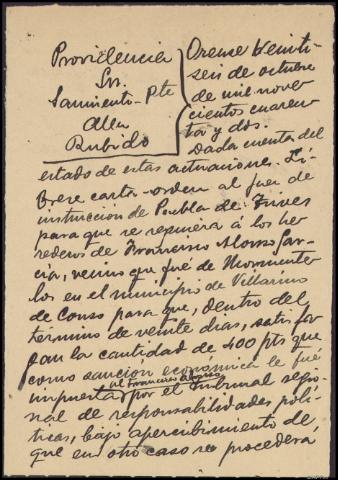 Providencia
Sr.
Sarmiento-Pte
Allen
Rubido
Orense Veinti-
seis de octubre
de mil nove-
cientos cuaren-
ta y dos.
Dada cuenta del
estado de estas actuaciones. Lí-
brese carta-orden al Juez de
instrucción de Puebla de Trives
para que se requiera á los he-
rederos de Francisco Alonso Gar-
cia, vecino que fué de Mormente-
los en el municipio de Villarino
de Conso para que, dentro del
término de veinte días, satisfa-
gan la cantidad de 400 pts que
como sanción económica le fué
al Francisco Alonso
impuesta por el Tribunal regio-
nal de responsabilidades polí-
ticas, bajo apercibimiento de
que en otro caso se procederá